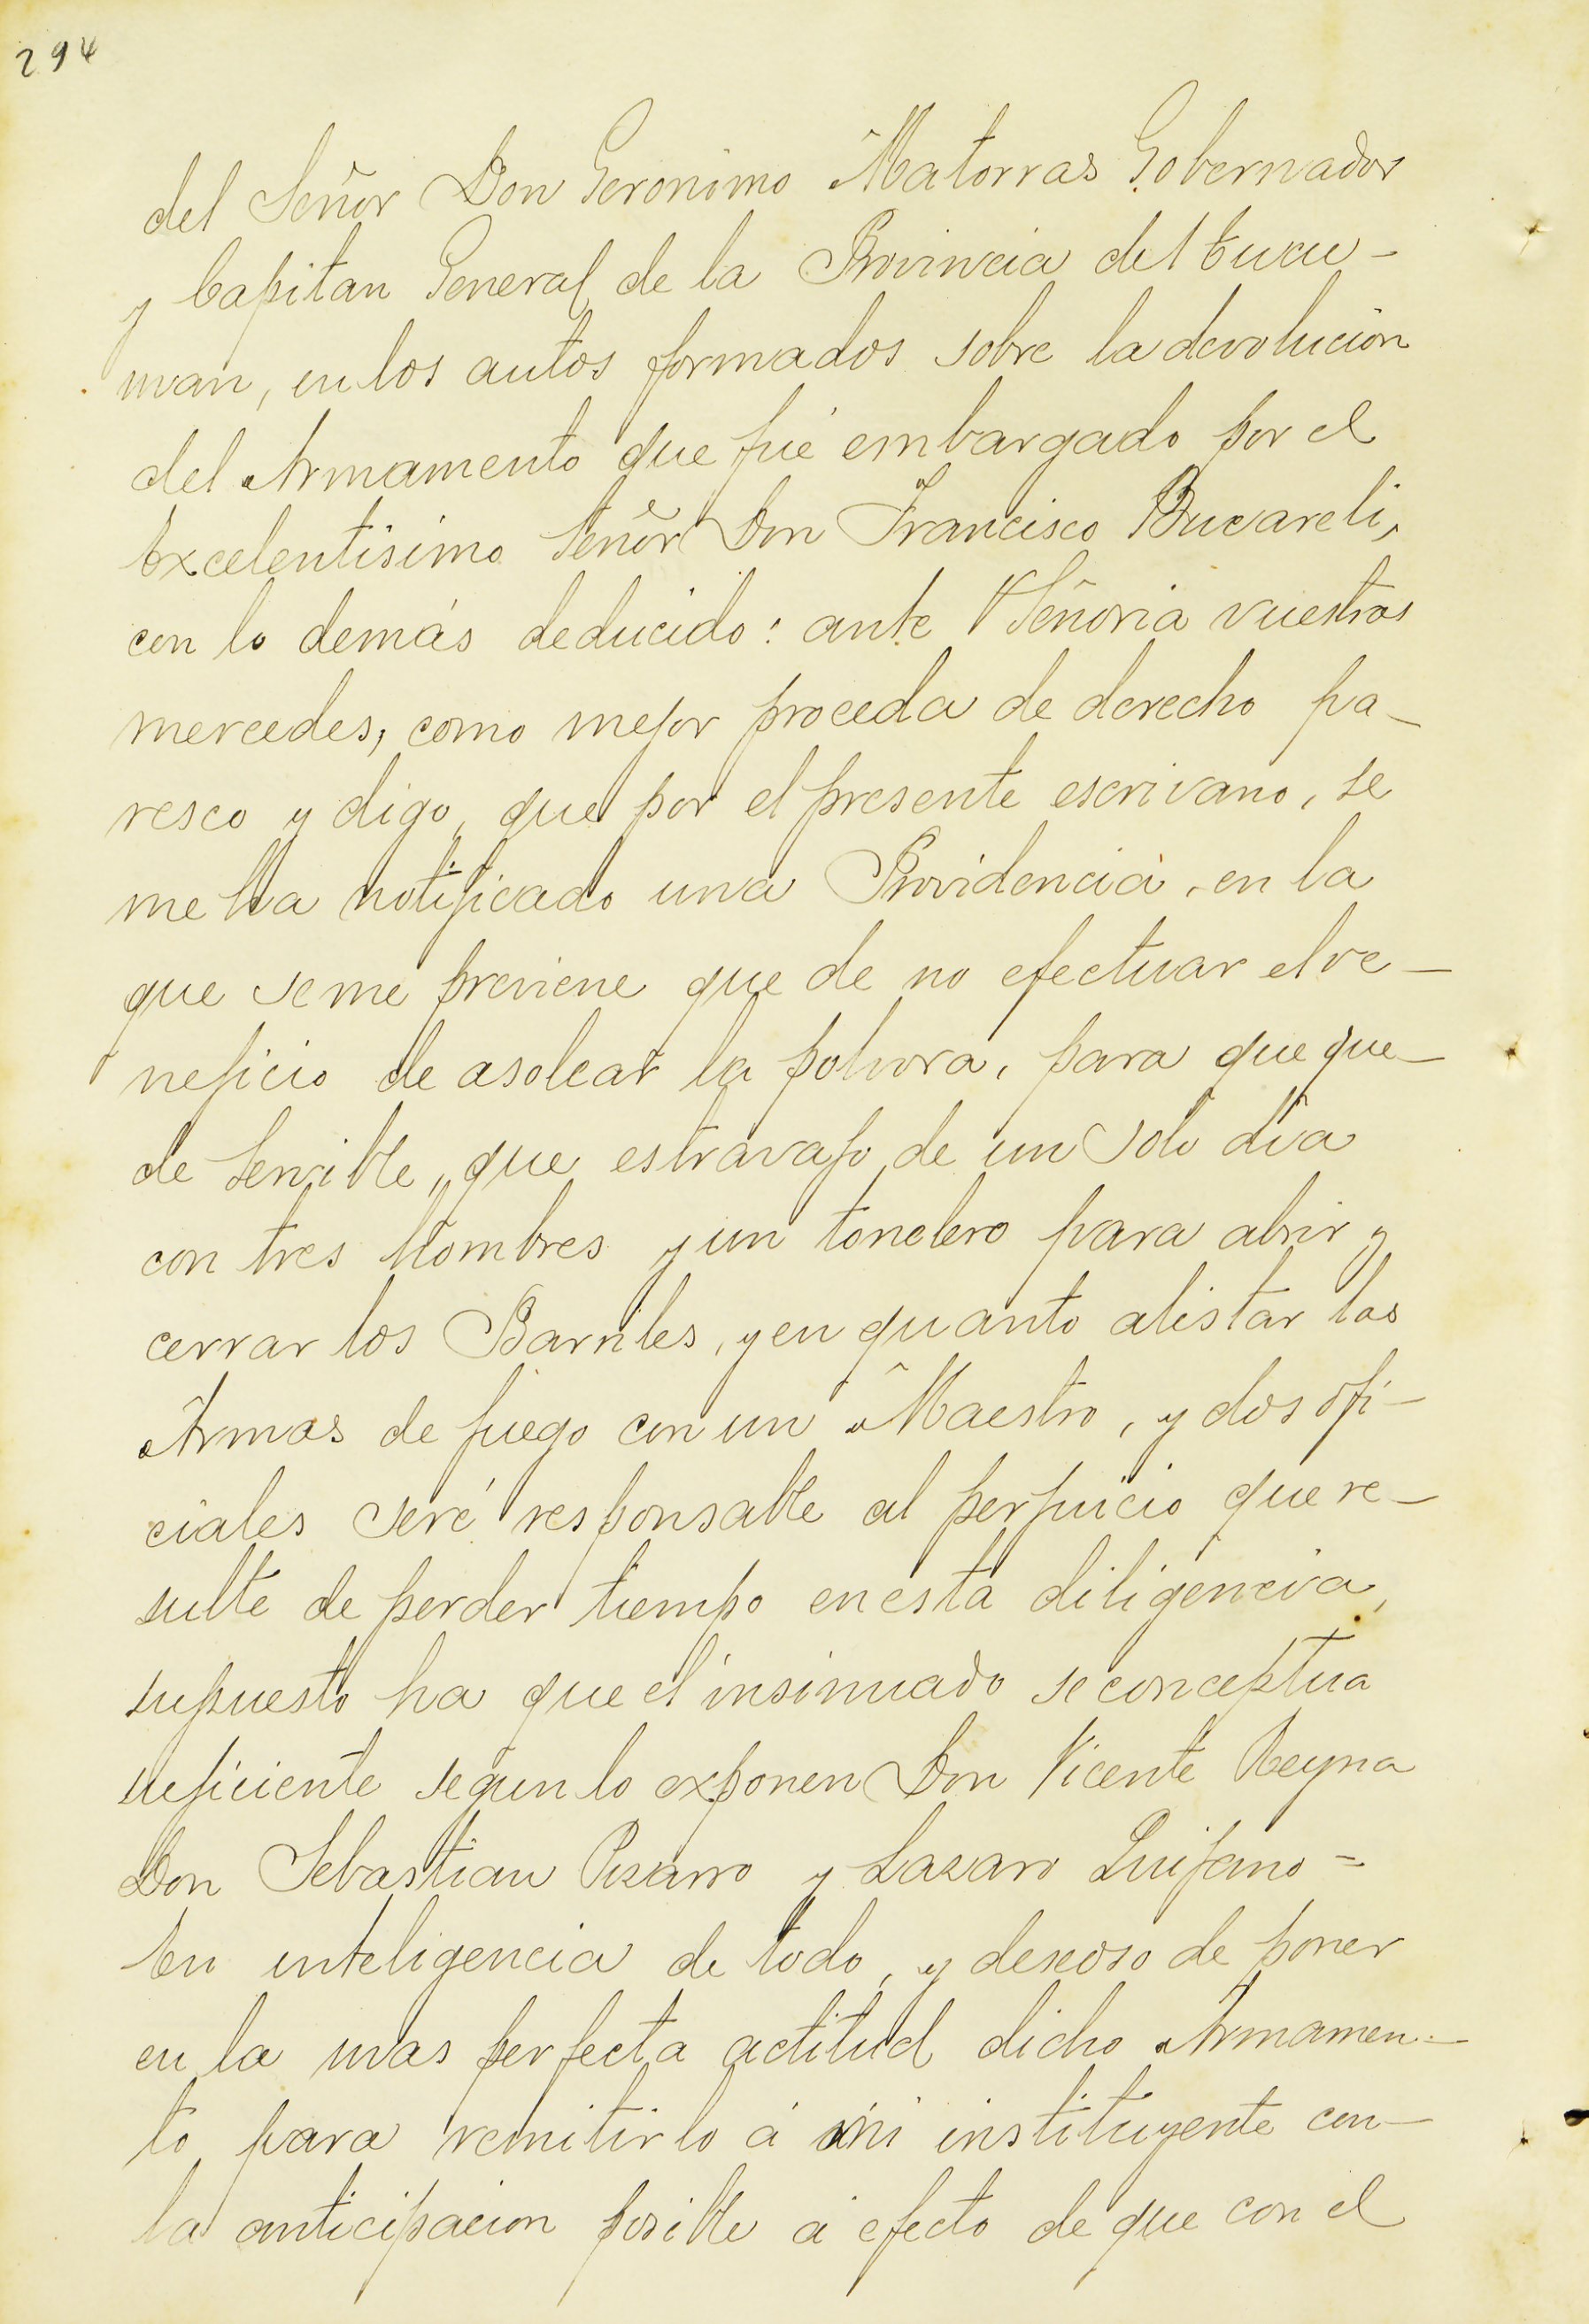 294
del Señor Don Geronimo Matorras Gobernador
y Capitan General de la Provincia del tucu-
man, en los autos formados sobre la devolucion
del Armamento que fué embargado por el
Excelentisimo Señor Don Francisco Bucareli,
con lo demás deducido: ante VSeñoria vuestras
mercedes, como mejor proceda de derecho pa-
resco y digo, que por el presente escrivano, se
me ha notificado una Providencia, en la
que se me previene que de no efectuar el ve-
neficio de asolear la polvora, para que que-
de servible, que es travajo de un solo dia
con tres hombres y un tonelero para abrir y
cerrar los Barriles, y en quanto alistar las
Armas de fuego con un Maestro, y dos ofi-
ciales seré responsable al perjuicio que re-
sulte de perder tiempo en esta diligencia,
supuesto ha que el insinuado se conceptua
suficiente segun lo exponen Don Vicente Reyna
Don Sebastian Pizarro y Lazaro Quijano=
En inteligencia de todo, y deseoso de poner
en la mas perfecta actitud dicho Armamen-
to para remitirlo á mi instituyente con-
la anticipacion posible á efecto de que con el